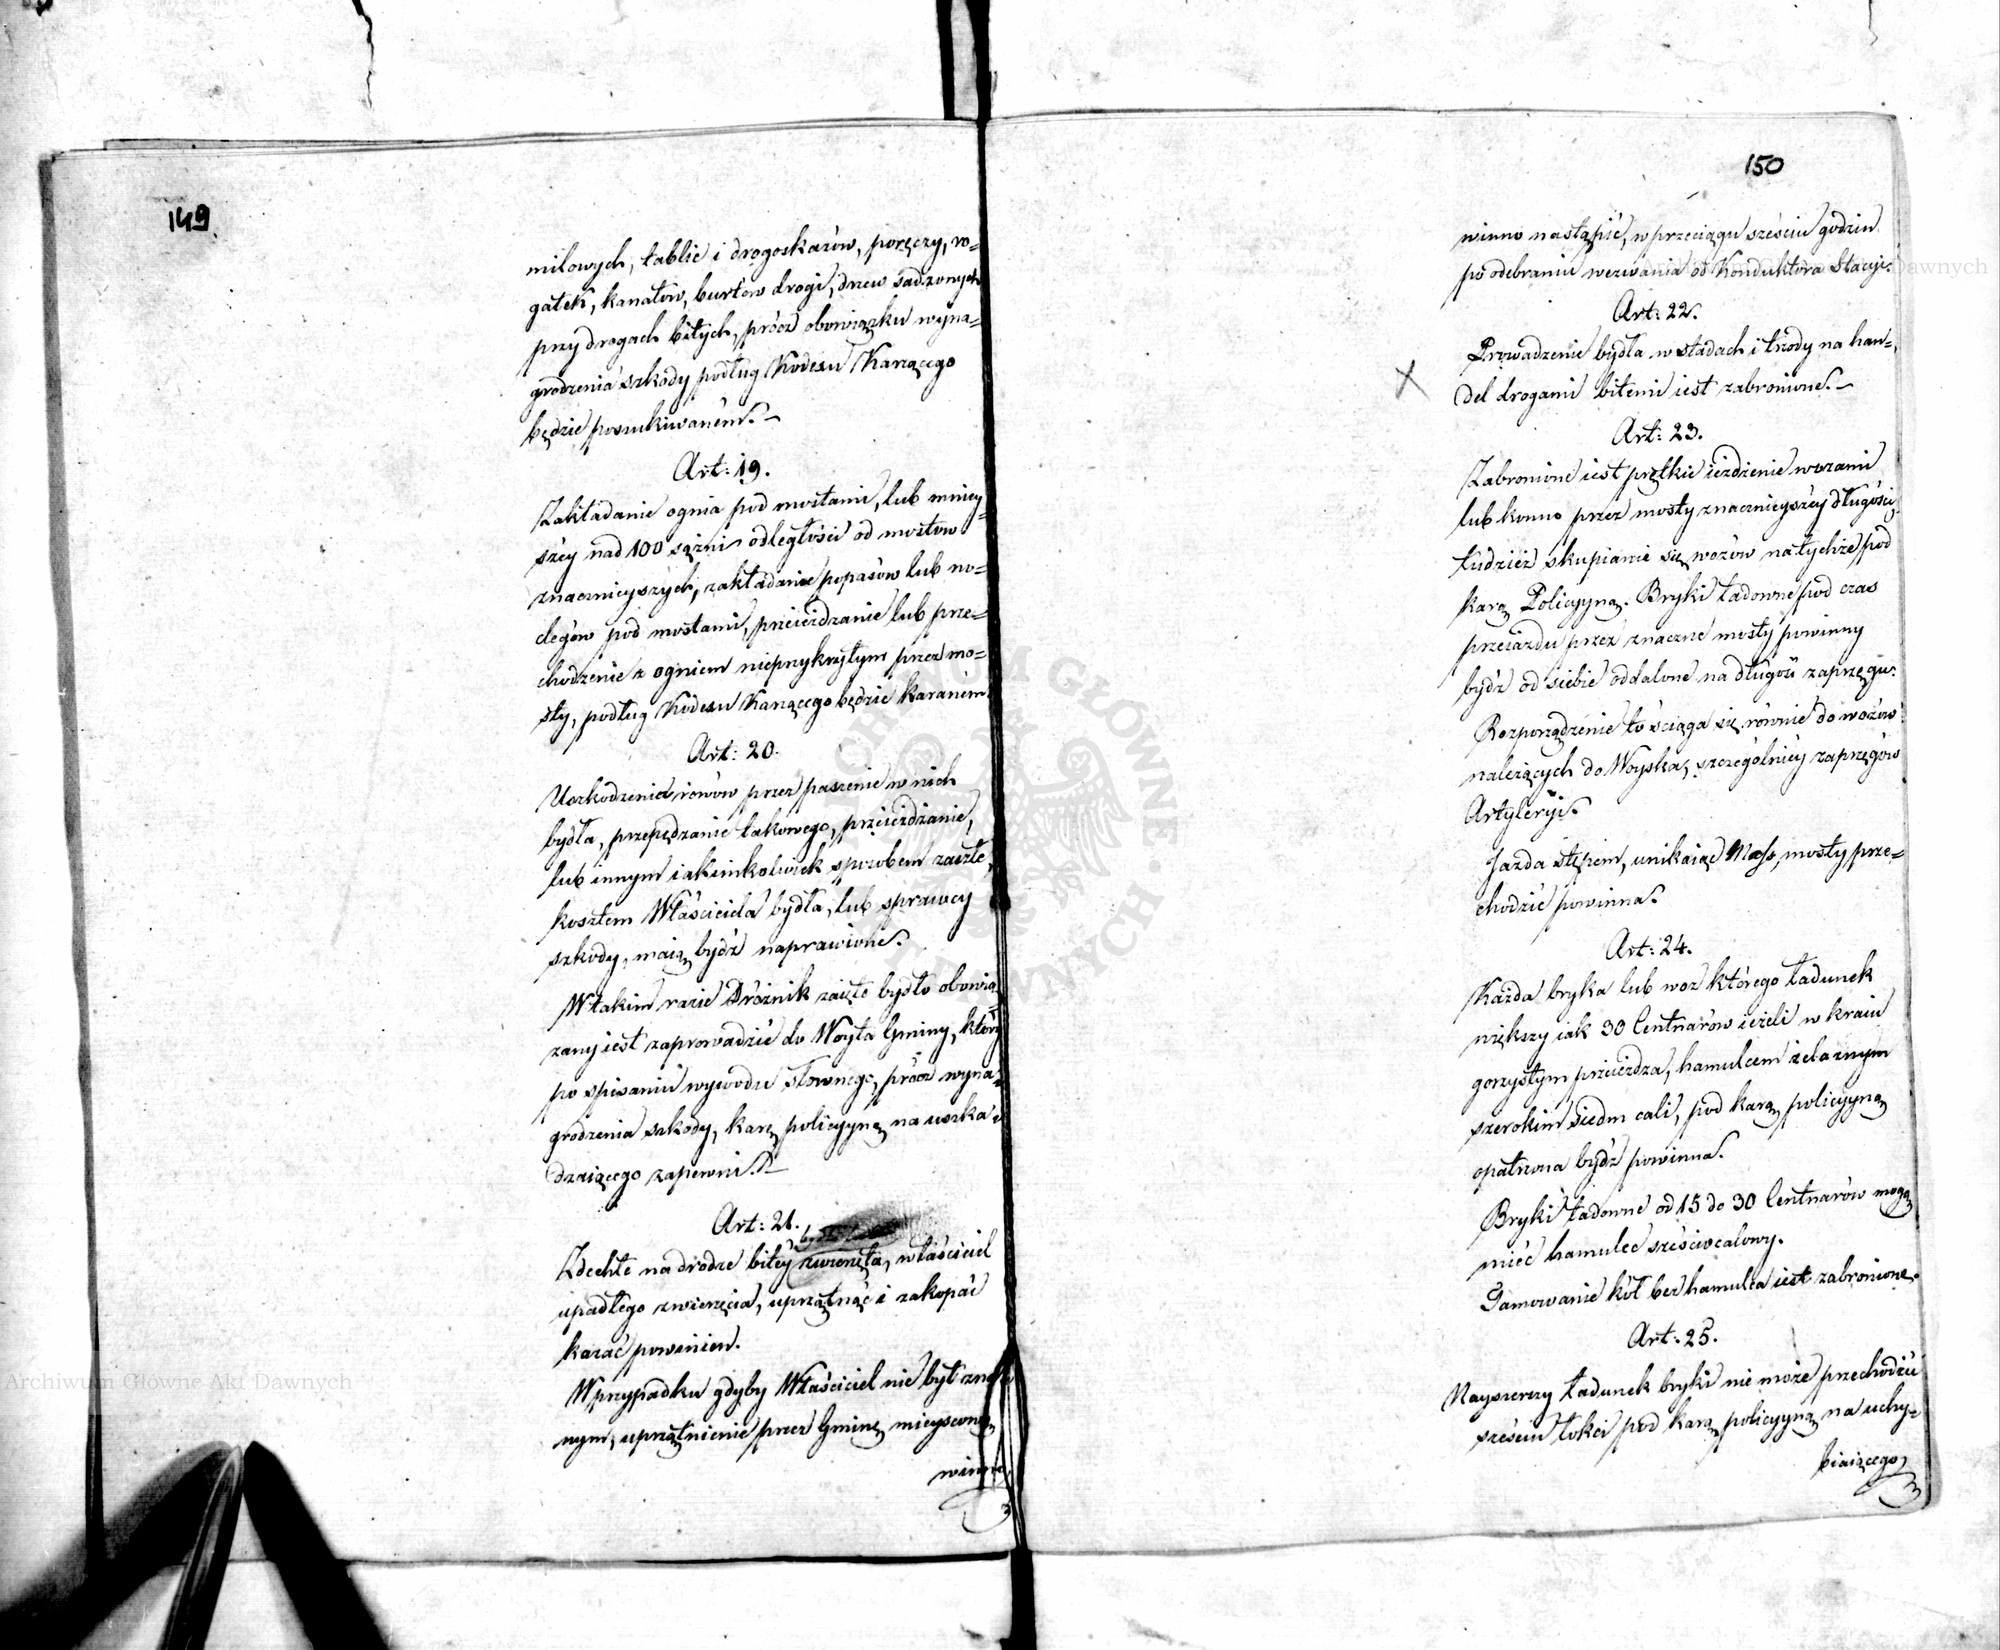 149.
milowych, tablic i drogoskazów, poręczy, ro=
gatek, kanałów, burtów drogi, drzew sadzonych
przy drogach bitych, prócz obowiązku wyna=
grodzenia szkody podług Kodexu Karzącego
będzie poszukiwaném.
Art: 19.
Zakładanie ognia pod mostami, lub mniey=
széy nad 100 sążni odległości od mostów
znacznieyszych, zakładanie popasów lub no=
clegów pod mostami, przeieżdzanie lub prze=
chodzenie z ogniem nieprzykrytym przez mo=
sty, podług Kodexu Karzącego będzie karaném
Art: 20.
Uszkodzenia rowów przez paszenie w nich
bydła, przepędzanie takowego, przeieżdżanie,
lub innym iakimkolwiek sposobem zaszłe,
kosztem Właściciela bydła, lub sprawcy
szkody, maią bydź naprawione.
W takim razie Dróżnik zaięte bydło obowią
zany iest zaprowadzić do Woyta Gminy, który
po spisaniu wywodu słownego, prócz wyna=
grodzenia szkody, karę policyyną na uszka=
dzaiącego zapewni.
Art: 21.
Zdechłe na drodze bitéy zwierzęta, właściciel
upadłego zwierzęcia, uprzątnąć i zakopać
kazać powinien.
W przypadku gdyby Właściciel nie był zna
nym, uprzątnienie przez Gminę mieyscową
winno
150
winno nastąpić, w przeciągu sześciu godzin
po odebraniu wezwania od Konduktora Stacyi.
Art: 22.
Prowadzenie bydła w stadach i trzody na han=
del drogami bitemi iest zabronione.
Art: 23.
Zabronione iest prętkie ieżdżenie wozami
lub konno przez mosty znacznieyszéy długości
tudzież skupianie się wozów na tychże pod
karą Policyyną. Bryki ładowne pod czas
przeiazdu przez znaczne mosty powinny
bydź od siebie oddalone na długość zaprzęgu.
Rozporządzenie to ściąga się równie do wozów
należących do Woyska, szczególniéy zaprzęgów
Artyleryi.
Jazda stępem, unikaiąc Mass, mosty prze=
chodzić powinna.
Art: 24.
Każda bryka lub wóz którego ładunek
większy iak 30 Centnarów ieżeli w kraiu
gorzystym przeieżdza, hamulcem żelaznym
szerokim siedm cali, pod karą policyyną
opatrzona bydź powinna.
Bryki ładowne od 15 do 30 Centnarów mogą
mieć hamulec sześciocalowy.
Tamowanie kół bez hamulca iest zabronione.
Art: 25.
Nayszerszy ładunek bryki nie może przechodzić
sześciu łokci pod karą policyyną na uchy=
biaiącego
Archiwum Główne Akt Dawnych